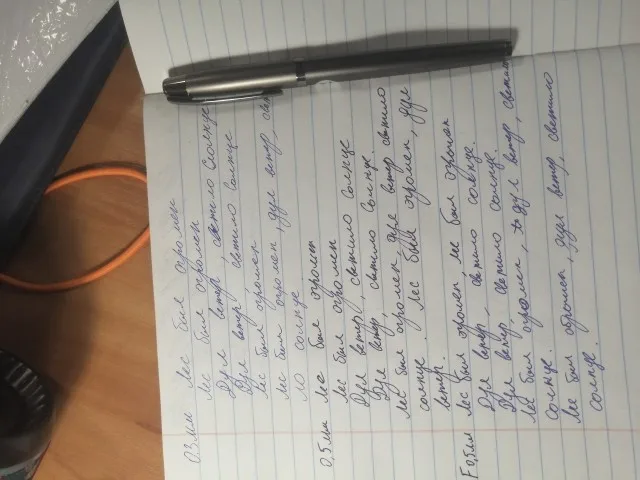 0.3 мм Лес был огромен
Лес был огромен
Дул ветер, светило солнце
Дул ветер, светило солнце
Лес был огромен
Лес был огромен, дул ветер, свети
ло солнце
0,5 мм Лес был огромен
Лес был огромен
Дул ветер, светило солнце
Дул ветер, светило солнце.
Лес был огромен, дул ветер светило
солнце. Лес был огромен, дул
ветер.
F 0,5 мм Лес был огромен, лес был огромен
Дул ветер, светило солнце.
Дул ветер, светило солнце.
Лес был огромен, дул ветер, светило
солнце.
Лес был огромен, дул ветер, светило
солнце.